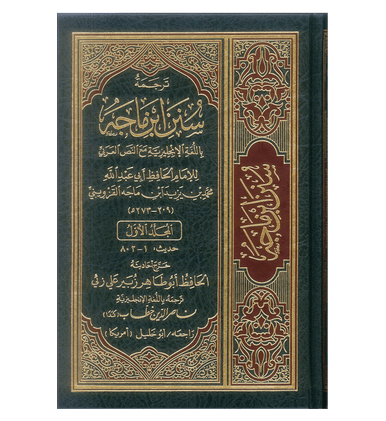 ترجمة
سنن ابن ماجه
باللغة الإنجليزية مع النص العربي
للإمام الحافظ أبي عبد الله
محمد بن يزيد ابن ماجه القزويني
(٢٠٩-٢٧٣ه)
المجلد الأول
حديث: ١-٨٠٢
خرج أحاديثه
الحافظ أبو طاهر زبير علي زئي
ترجمه باللغة الإنجليزية
ناصر الدين خطاب (كندا)
راجعه / أبو خليل (أمريكا)
سنن ابن ماجه